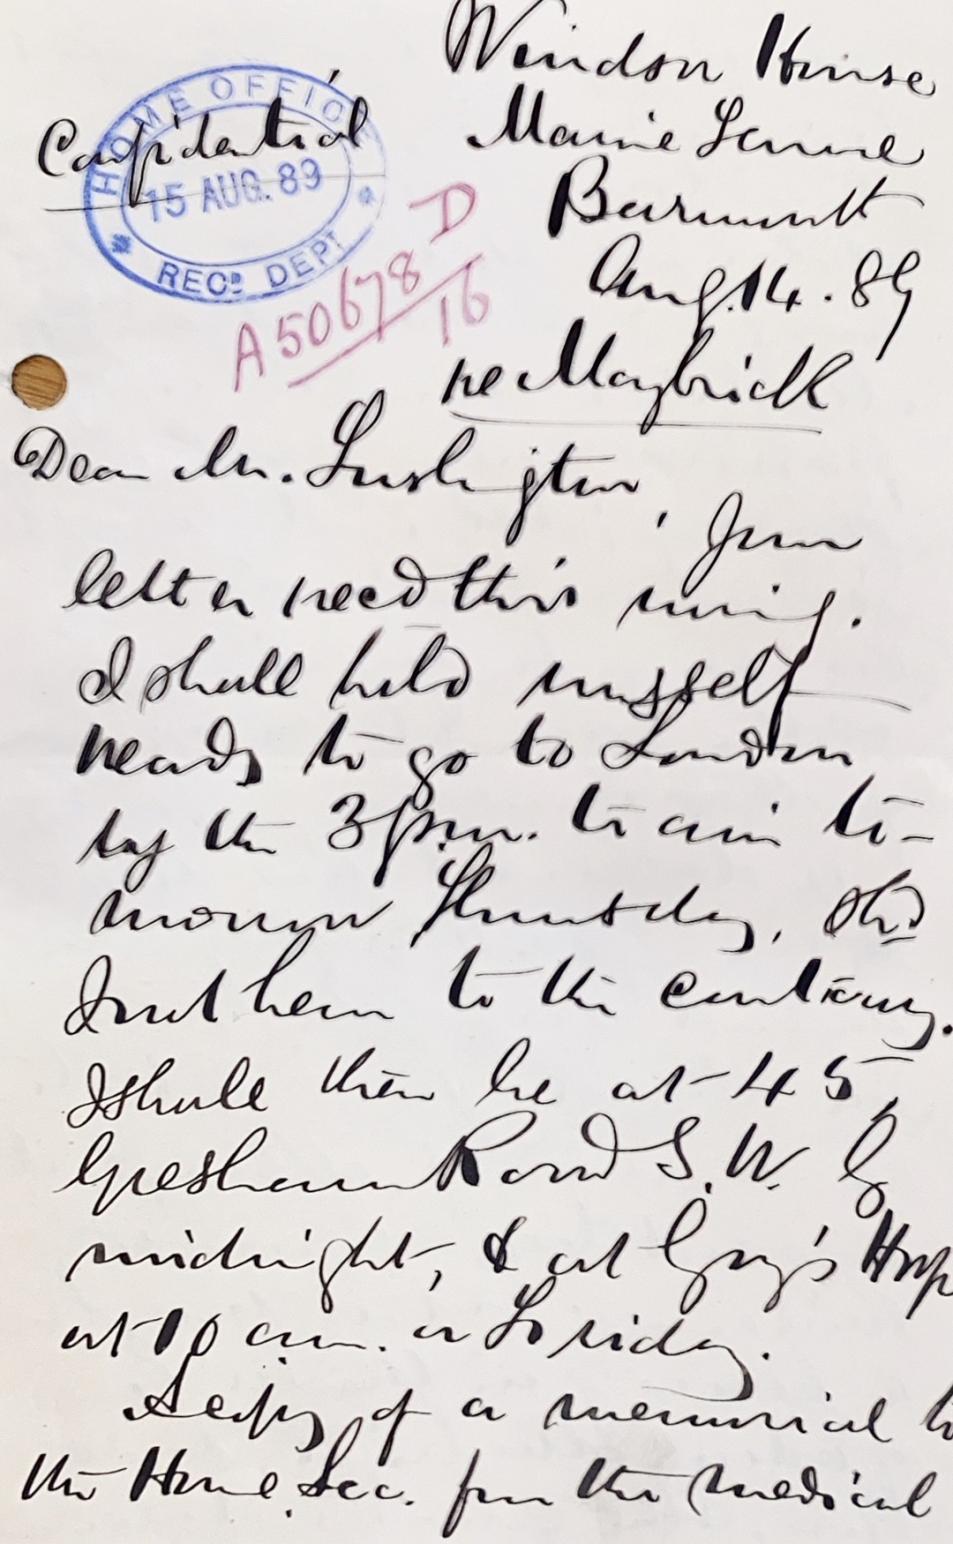 Windsor House
Confidential
Marine Terrace
HOME OFFICE
15 AUG. 89
RECD DEPT
Barmouth
A50678 D
16
Aug. 14. 89
re Maybrick
Dear Mr. Lushington,
Your
letter recd this mng.
I shall hold myself
ready to go to London
by the 3 p.m. train to-
morrow Thursday, shd
I not hear to the contrary.
I shall then be at 45,
Gresham Road S.W. by
midnight, & at Guy's Hosp
at 10 am. on Friday.
A copy of a memorial to
the Home Sec. from the medical